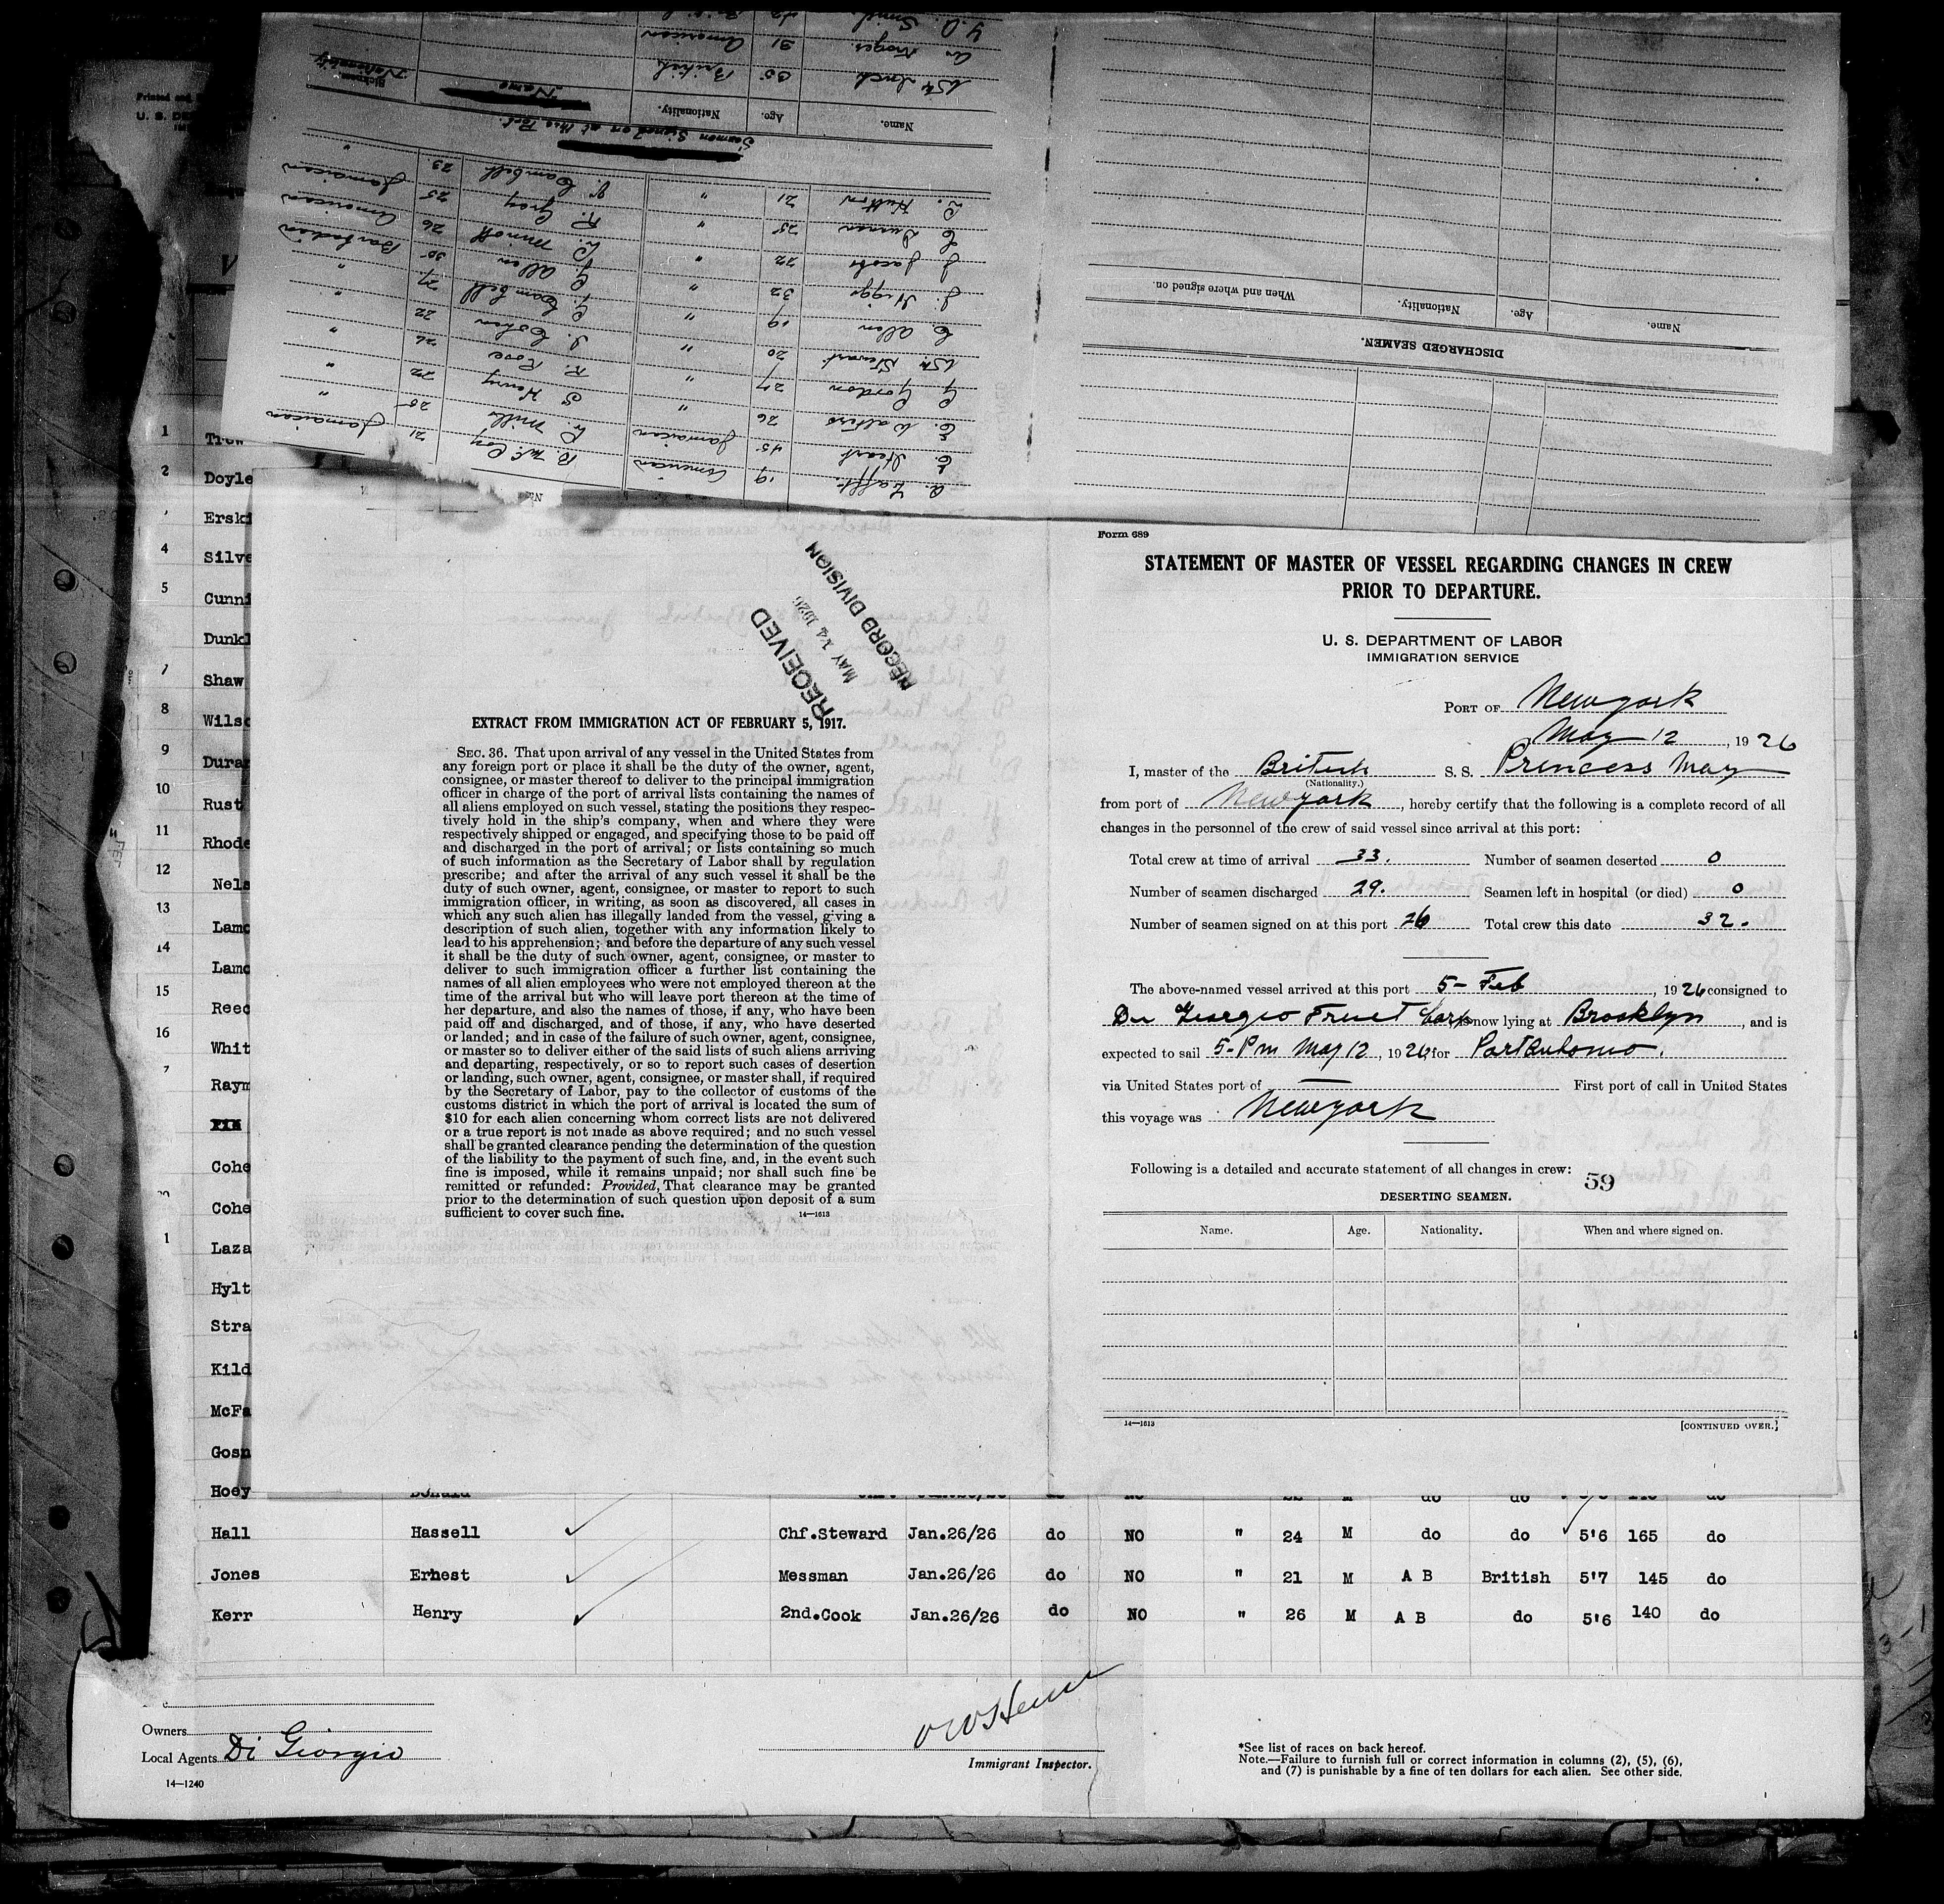 Printed and
U. S. DE
Sickman Nationality
Name.
Age.
Nationality.
Name
Wm Inch 35 British
31 American
Seamen Signed on at this Port.
A. 19 American
E. 45 Jamaican
E. Walters 26 "
G. Gordon 27 "
Wm Stewart 20 "
C. Allen 19 "
J. Higgs 32 "
J. Jacobs 22 "
25 "
L. Hutton 21 "
R. McCoy 21 Jamaican
L. Mills 25 "
S. Henry 22 "
R. Rose 26 "
S. Cohen 22 "
G. Cambell 27 "
G. Allen 30 "
L. Minott 26 Barbadian
R. Gray 25 American
V. Cambell 23 Jamaican
Name.
Age.
Nationality.
When and where signed on.
DISCHARGED SEAMEN.
1
2 Doyle
Erski
4 Silve
5 Cunni
Dunkl
7 Shaw
8 Wilso
9 Duran
10 Rust
11 Rhode
12 Nels
13 Lamo
14 Lamo
15 Reed
16 Whit
7 Raym
Cohe
Cohe
1 Laza
Hylt
Stra
Kild
McFa
Gosn
Hoey Donald
RECEIVED
MAY 14 1926
RECORD DIVISION
EXTRACT FROM IMMIGRATION ACT OF FEBRUARY 5, 1917.
SEC. 36. That upon arrival of any vessel in the United States from
any foreign port or place it shall be the duty of the owner, agent,
consignee, or master thereof to deliver to the principal immigration
officer in charge of the port of arrival lists containing the names of
all aliens employed on such vessel, stating the positions they respec-
tively hold in the ship's company, when and where they were
respectively shipped or engaged, and specifying those to be paid off
and discharged in the port of arrival; or lists containing so much
of such information as the Secretary of Labor shall by regulation
prescribe; and after the arrival of any such vessel it shall be the
duty of such owner, agent, consignee, or master to report to such
immigration officer, in writing, as soon as discovered, all cases in
which any such alien has illegally landed from the vessel, giving a
description of such alien, together with any information likely to
lead to his apprehension; and before the departure of any such vessel
it shall be the duty of such owner, agent, consignee, or master to
deliver to such immigration officer a further list containing the
names of all alien employees who were not employed thereon at the
time of the arrival but who will leave port thereon at the time of
her departure, and also the names of those, if any, who have been
paid off and discharged, and of those, if any, who have deserted
or landed; and in case of the failure of such owner, agent, consignee,
or master so to deliver either of the said lists of such aliens arriving
and departing, respectively, or so to report such cases of desertion
or landing, such owner, agent, consignee, or master shall, if required
by the Secretary of Labor, pay to the collector of customs of the
customs district in which the port of arrival is located the sum of
$10 for each alien concerning whom correct lists are not delivered
or a true report is not made as above required; and no such vessel
shall be granted clearance pending the determination of the question
of the liability to the payment of such fine, and, in the event such
fine is imposed, while it remains unpaid; nor shall such fine be
remitted or refunded: Provided, That clearance may be granted
prior to the determination of such question upon deposit of a sum
sufficient to cover such fine.
14—1613
Form 689
STATEMENT OF MASTER OF VESSEL REGARDING CHANGES IN CREW
PRIOR TO DEPARTURE.
U. S. DEPARTMENT OF LABOR
IMMIGRATION SERVICE
PORT OF New york
May 12, 1926
I, master of the British S. S. Princess May
(Nationality.)
from port of New york, hereby certify that the following is a complete record of all
changes in the personnel of the crew of said vessel since arrival at this port:
Total crew at time of arrival 33. Number of seamen deserted 0
Number of seamen discharged 29. Seamen left in hospital (or died) 0
Number of seamen signed on at this port 26 Total crew this date 32.
The above-named vessel arrived at this port 5- Feb, 1926 consigned to
Di Georgeo Fruit Corp now lying at Brooklyn, and is
expected to sail 5-Pm May 12, 1926 for Port Antonio.
via United States port of — First port of call in United States
this voyage was New york
Following is a detailed and accurate statement of all changes in crew:
59
DESERTING SEAMEN.
Name. Age. Nationality. When and where signed on.
14—1613
[CONTINUED OVER.]
Hall Hassell Chf.Steward Jan.26/26 do NO " 24 M do do 5'6 165 do
Jones Ernest Messman Jan.26/26 do NO " 21 M A B British 5'7 145 do
Kerr Henry 2nd.Cook Jan.26/26 do NO " 26 M A B do 5'6 140 do
Owners
Local Agents Di Giorgio
14—1240
Immigrant Inspector.
*See list of races on back hereof.
Note.—Failure to furnish full or correct information in columns (2), (5), (6),
and (7) is punishable by a fine of ten dollars for each alien. See other side.